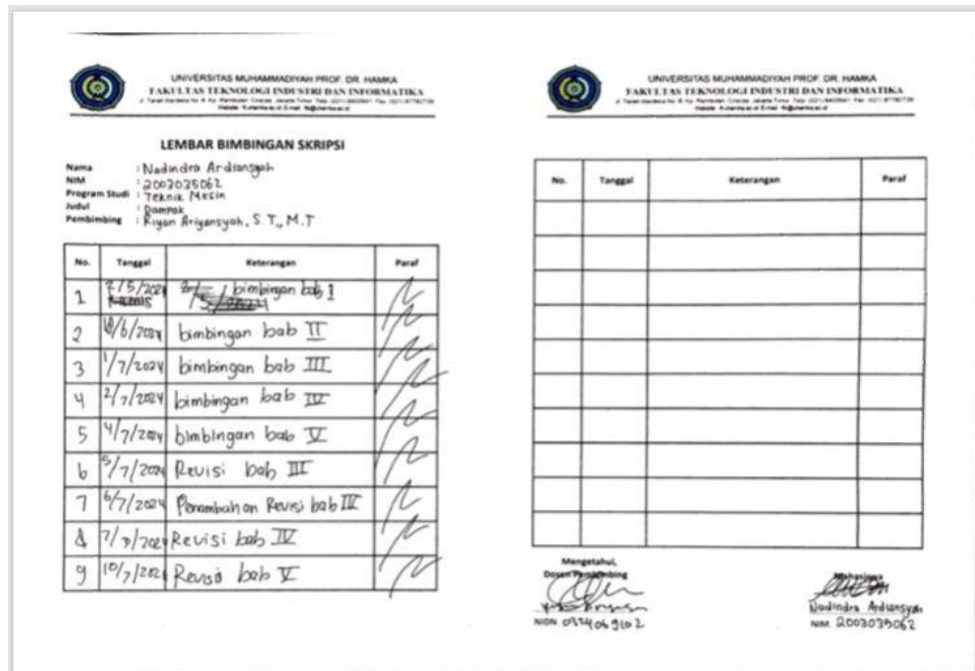 UNIVERSITAS MUHAMMADIYAH PROF. DR. HAMKA
FAKULTAS TEKNOLOGI INDUSTRI DAN INFORMATIKA
LEMBAR BIMBINGAN SKRIPSI
Nama : Nadindra Ardiansyah
NIM : 2003035062
Program Studi : Teknik Mesin
Judul : Dampak
Pembimbing : Riyan Ariyansyah, S.T., M.T
No. Tanggal Keterangan Paraf
1 2/5/2024 bimbingan bab 1
2 /6/2024 bimbingan bab II
3 1/7/2024 bimbingan bab III
4 2/7/2024 bimbingan bab IV
5 4/7/2024 bimbingan bab V
6 5/7/2024 Revisi bab III
7 6/7/2024 Penambahan Revisi bab IV
8 7/7/2024 Revisi bab IV
9 10/7/2024 Revisi bab V
UNIVERSITAS MUHAMMADIYAH PROF. DR. HAMKA
FAKULTAS TEKNOLOGI INDUSTRI DAN INFORMATIKA
No. Tanggal Keterangan Paraf
Mengetahui,
Dosen Pembimbing
Mahasiswa
Nadindra Ardiansyah
NIDN. 0324069102
NIM. 2003035062